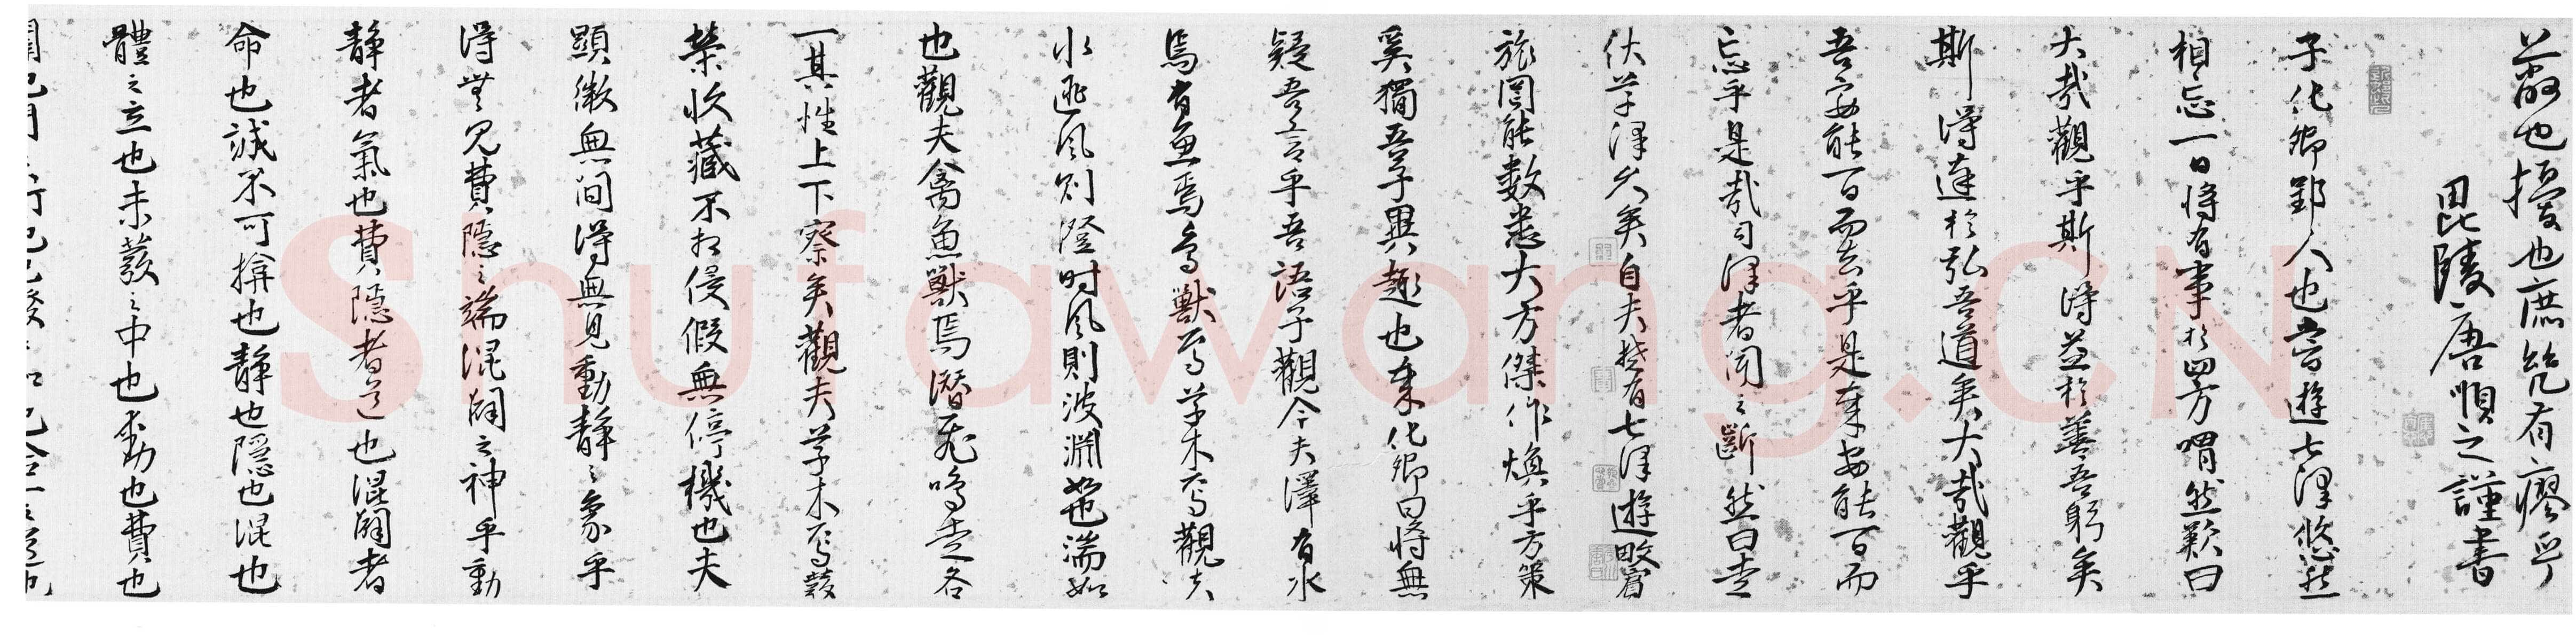 蔽也擾也庶幾有瘳乎
毘陵唐順之謹書
子化卿郢人也嘗遊七澤悠然
相忘一日將有事於四方喟然歎曰
大哉觀乎斯得益於善吾躬矣
斯得達於弘吾道矣大哉觀乎
吾安能一日而去乎是奚安能一日而
忘乎是哉司澤者聞之斷然曰走
伏草澤久矣自夫楚有七澤遊畋賓
旅罔能數悉大方傑作煥乎方策
奚獨吾子異趣也奚化卿曰將無
疑吾言乎吾語子觀今夫澤有水
焉有魚焉鳥獸焉草木焉觀夫
水逝風則澄時風則波淵如也湍如
也觀夫禽魚獸焉潛飛鳴走各
一其性上下察矣觀夫草木焉發
榮收藏不相侵假無停機也夫
顯微無間得無見動靜之象乎
得無見費隱之端混闢之神乎動
靜者氣也費隱者道也混闢者
命也誠不可揜也靜也隱也混也
體之立也未發之中也動也費也
Shufawang.CN